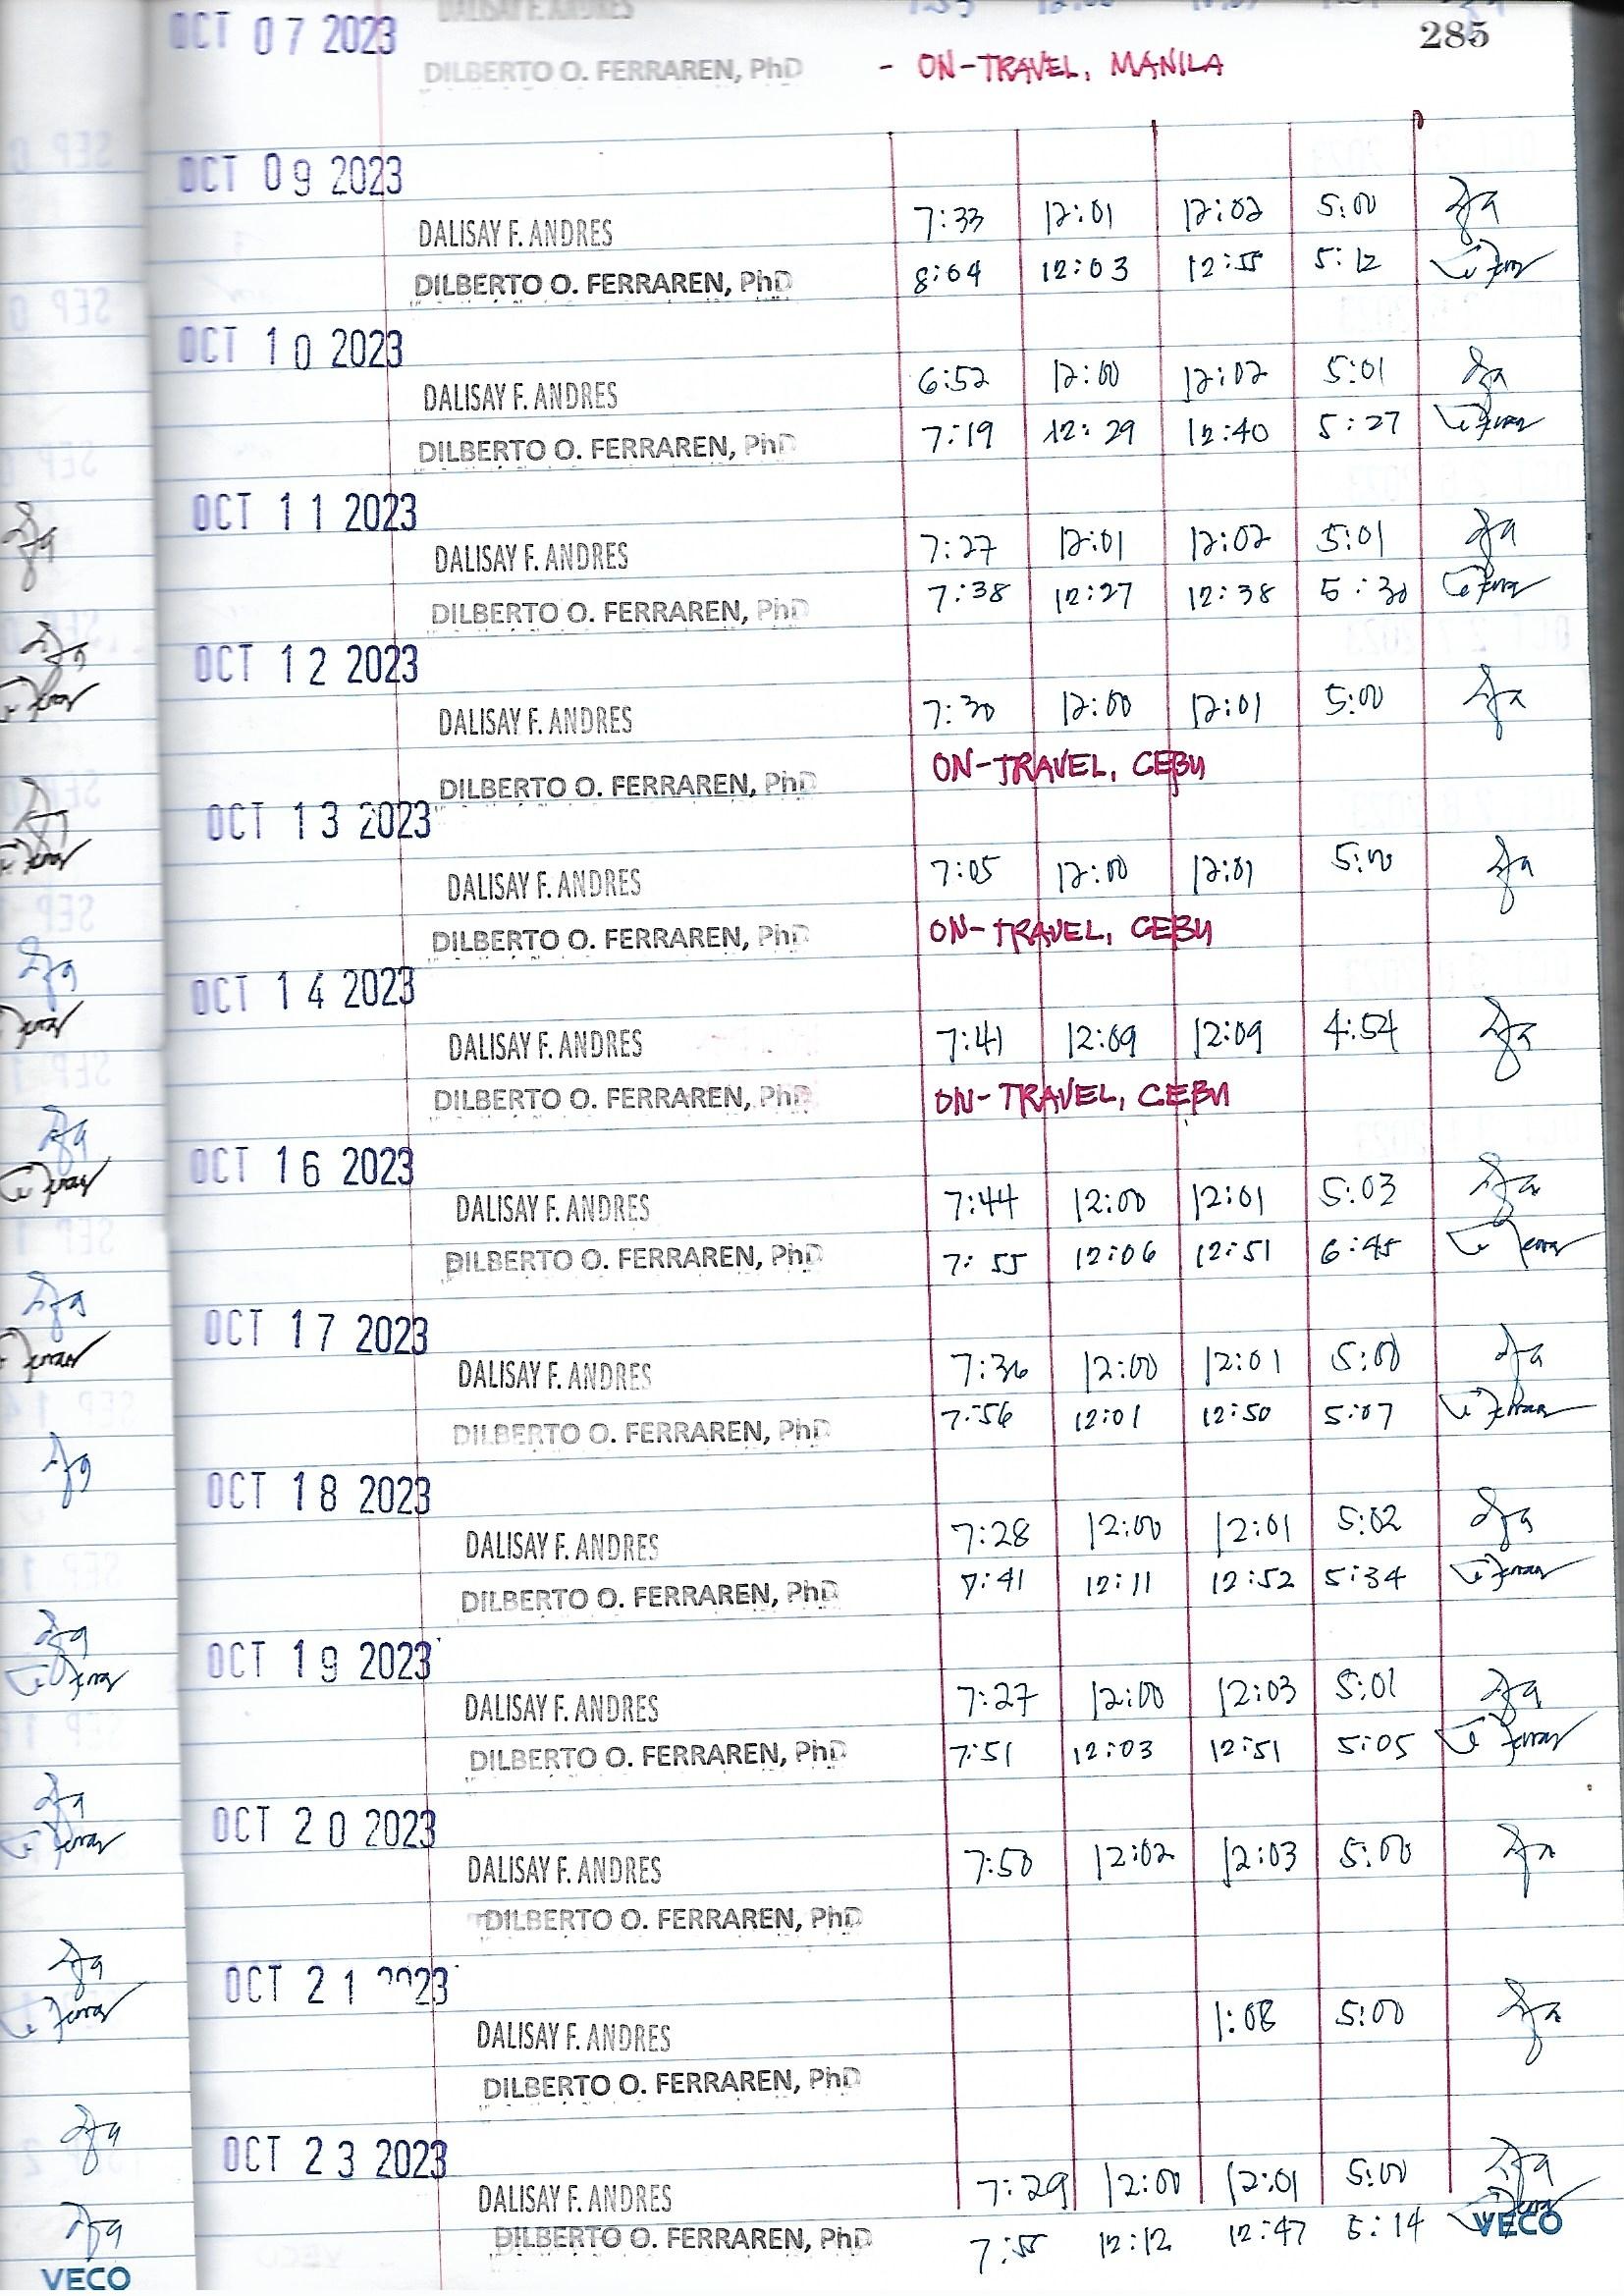 285
OCT 07 2023 DALISAY F. ANDRES
DILBERTO O. FERRAREN, PhD - ON-TRAVEL, MANILA
OCT 09 2023
DALISAY F. ANDRES 7:33 12:01 12:02 5:00
DILBERTO O. FERRAREN, PhD 8:04 12:03 12:55 5:12
OCT 10 2023
DALISAY F. ANDRES 6:52 12:00 12:02 5:01
DILBERTO O. FERRAREN, PhD 7:19 12:29 12:40 5:27
OCT 11 2023
DALISAY F. ANDRES 7:27 12:01 12:02 5:01
DILBERTO O. FERRAREN, PhD 7:38 12:27 12:38 5:30
OCT 12 2023
DALISAY F. ANDRES 7:30 12:00 12:01 5:00
DILBERTO O. FERRAREN, PhD ON-TRAVEL, CEBU
OCT 13 2023
DALISAY F. ANDRES 7:05 12:00 12:01 5:00
DILBERTO O. FERRAREN, PhD ON-TRAVEL, CEBU
OCT 14 2023
DALISAY F. ANDRES 7:41 12:09 12:09 4:54
DILBERTO O. FERRAREN, PhD ON-TRAVEL, CEBU
OCT 16 2023
DALISAY F. ANDRES 7:44 12:00 12:01 5:03
DILBERTO O. FERRAREN, PhD 7:55 12:06 12:51 6:45
OCT 17 2023
DALISAY F. ANDRES 7:36 12:00 12:01 5:00
DILBERTO O. FERRAREN, PhD 7:56 12:01 12:50 5:07
OCT 18 2023
DALISAY F. ANDRES 7:28 12:00 12:01 5:02
DILBERTO O. FERRAREN, PhD 7:41 12:11 12:52 5:34
OCT 19 2023
DALISAY F. ANDRES 7:27 12:00 12:03 5:01
DILBERTO O. FERRAREN, PhD 7:51 12:03 12:51 5:05
OCT 20 2023
DALISAY F. ANDRES 7:50 12:02 12:03 5:00
DILBERTO O. FERRAREN, PhD
OCT 21 2023
DALISAY F. ANDRES 1:08 5:00
DILBERTO O. FERRAREN, PhD
OCT 23 2023
DALISAY F. ANDRES 7:29 12:00 12:01 5:00
DILBERTO O. FERRAREN, PhD 7:55 12:12 12:47 5:14
VECO
VECO